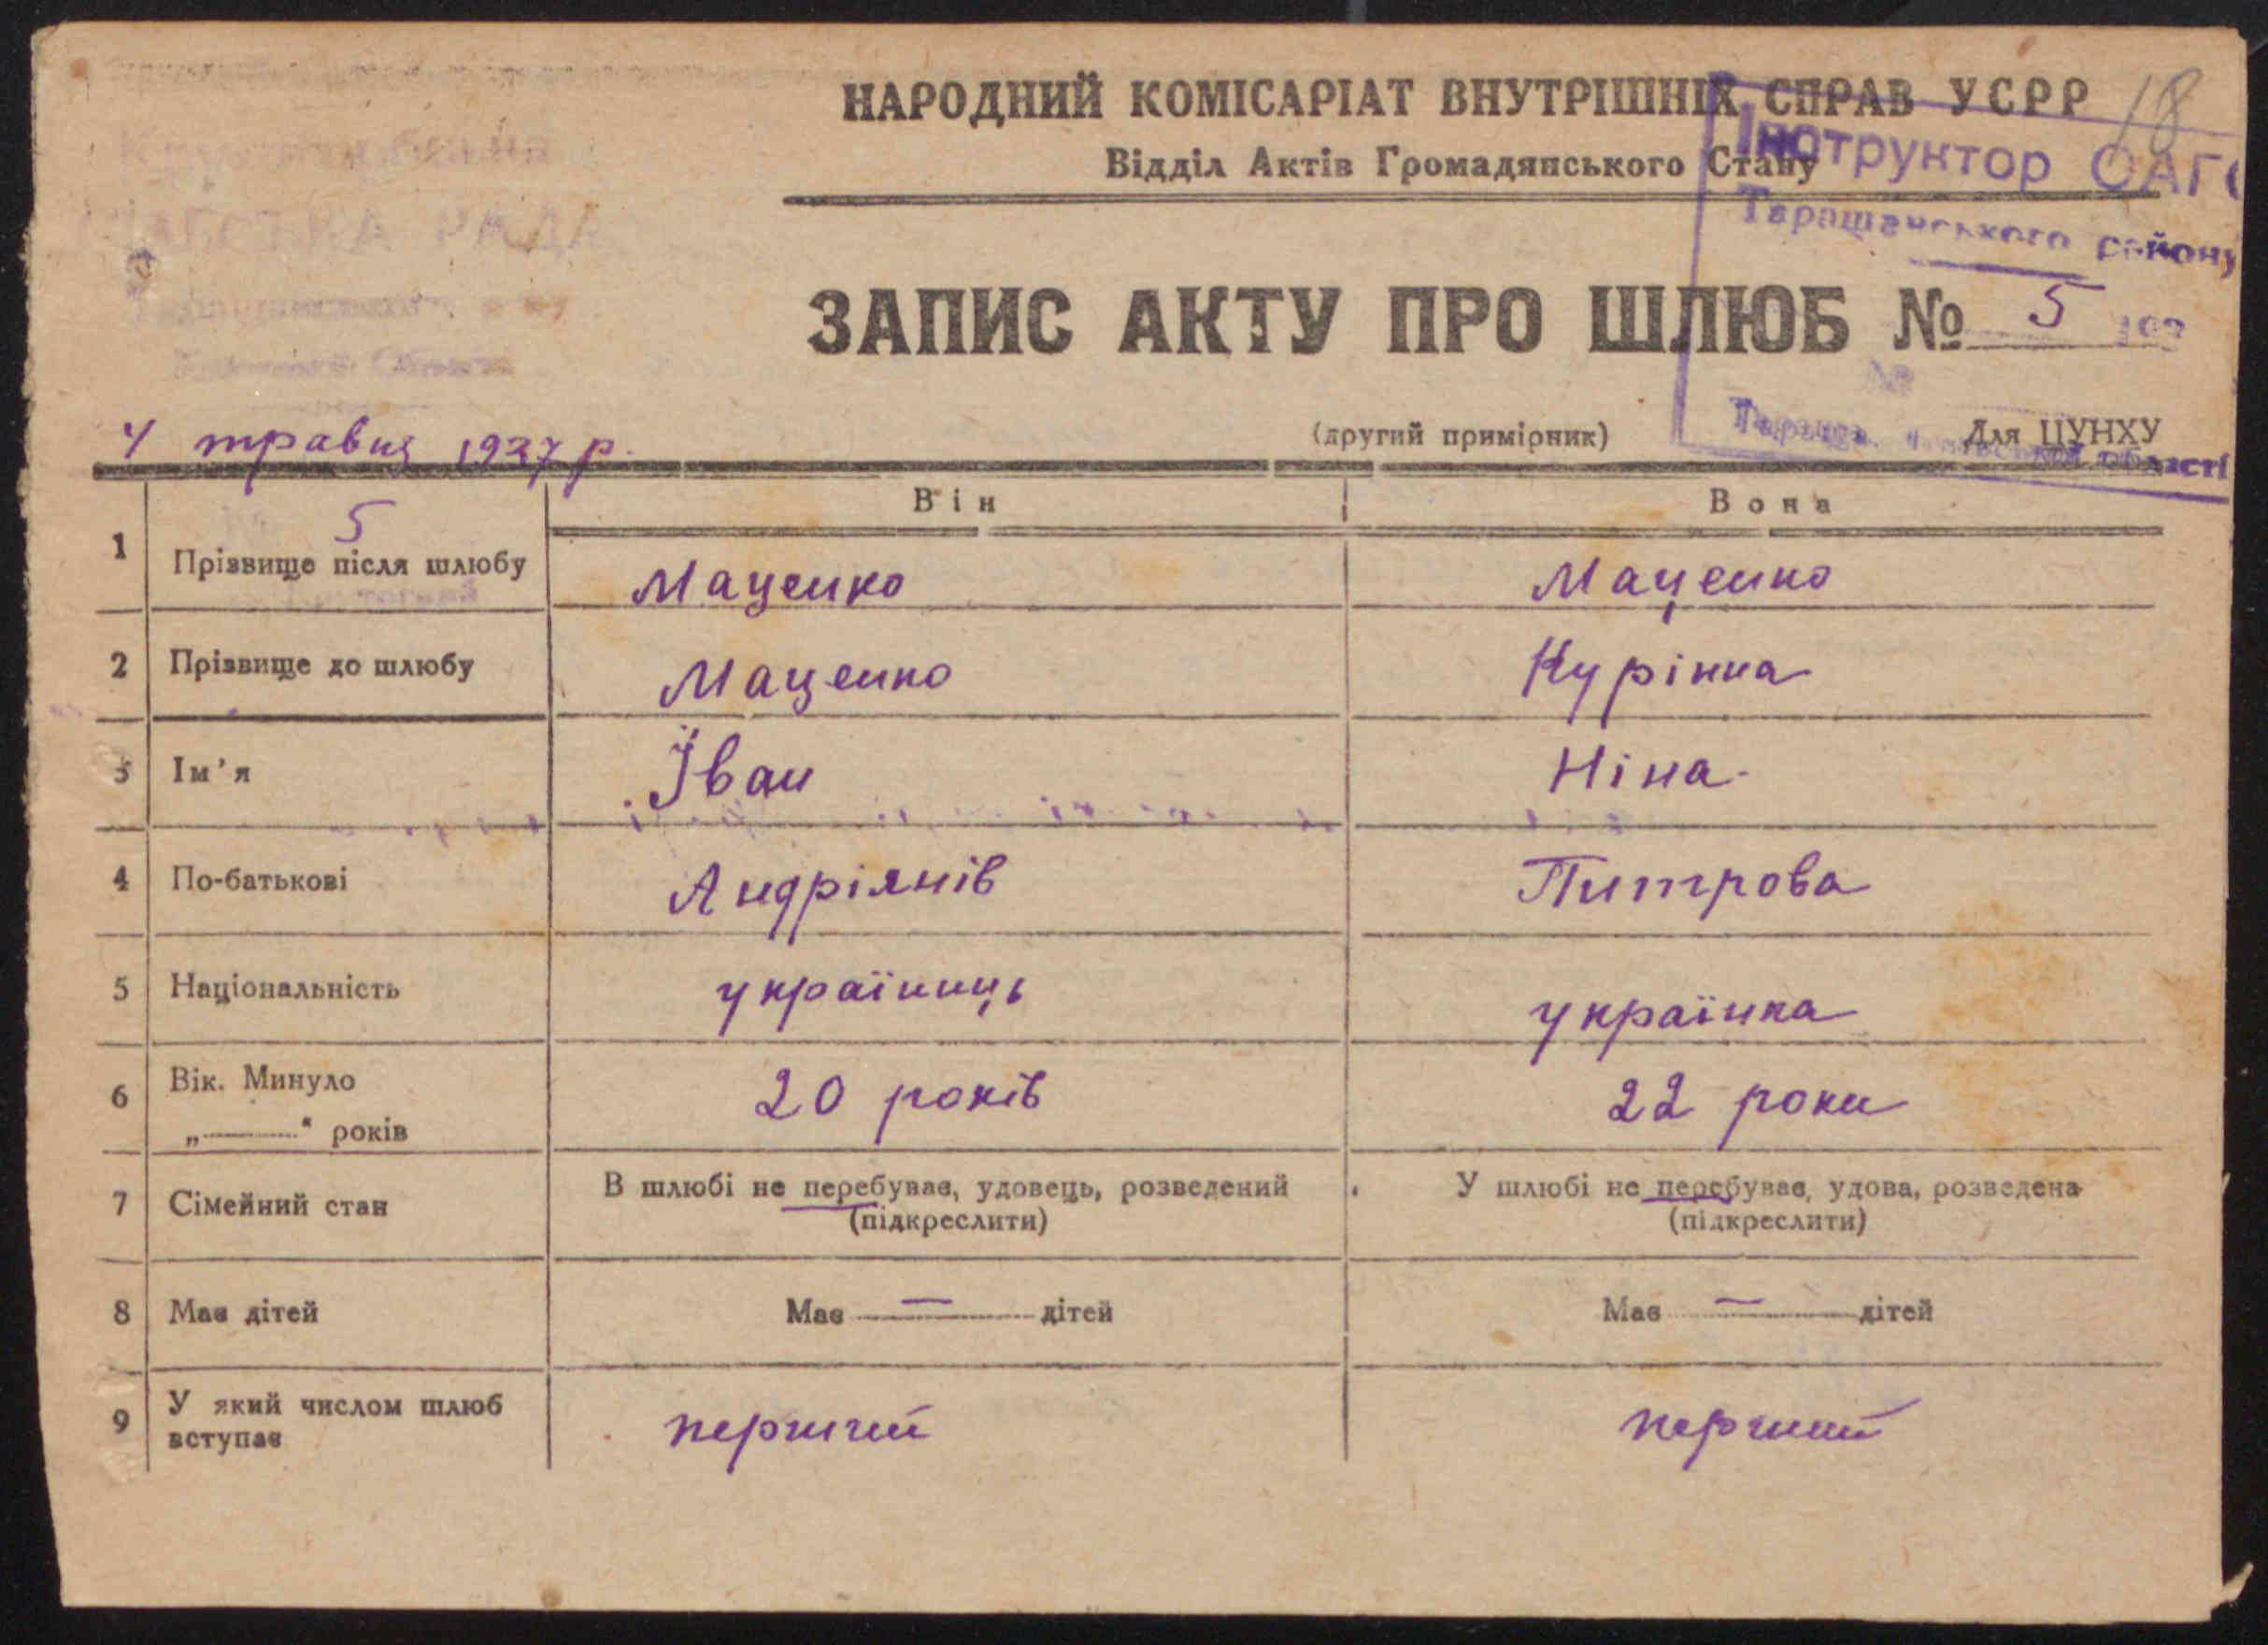 НАРОДНИЙ КОМІСАРІАТ ВНУТРІШНІХ СПРАВ УСРР
18
Відділ Актів Громадянського Стану
Інструктор ОАГС
Таращанського району
РАДА
ЗАПИС АКТУ ПРО ШЛЮБ № 5
193
№
4 травня 1937 р.
(другий примірник)
Для ЦУНХУ
області
5
Він
Вона
1 Прізвище після шлюбу Маценко Маценко
2 Прізвище до шлюбу Маценко Курінна
3 Ім'я Іван Ніна
4 По-батькові Андріянів Питрова
5 Національність україниць українка
6 Вік. Минуло „ “ років 20 років 22 роки
7 Сімейний стан В шлюбі не перебуває, удовець, розведений (підкреслити) У шлюбі не перебуває, удова, розведена (підкреслити)
8 Має дітей Має — дітей Має — дітей
9 У який числом шлюб вступає перший перший